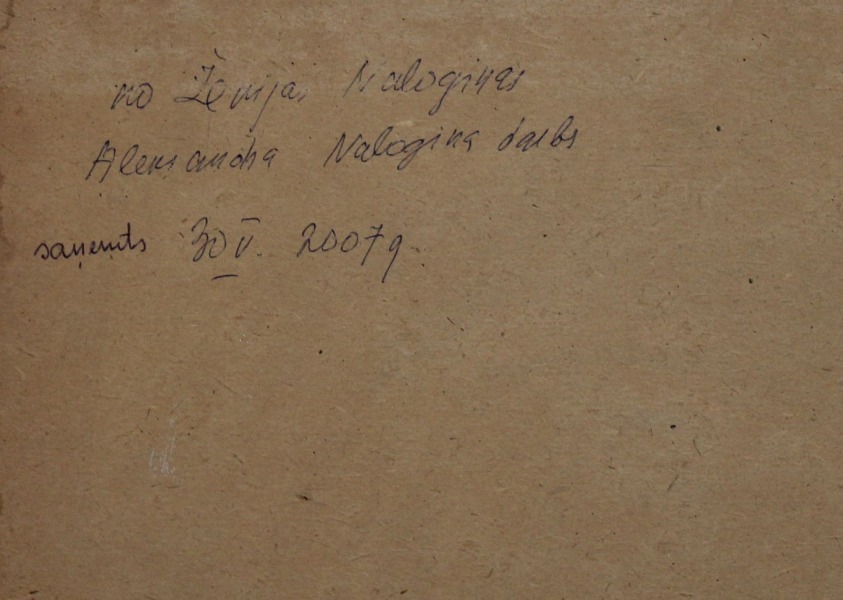 no Ženijas Naloginas
Aleksandra Nalogina darbs
saņemts 30 V. 2007 g.